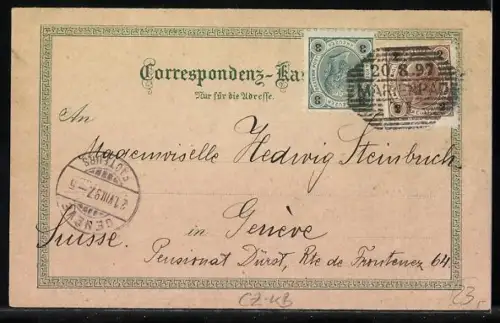 Correspondenz-Ka
Nur für die Adresse.
3 3
20.8.97
MARIENBAD
An
Mademoiselle Hedwig Steinbuch
in Genève
Suisse.
Pensionat Dürst, Rte de Frontenex 64
GENÈVE
21.VIII.97
CZ-KB
23,-